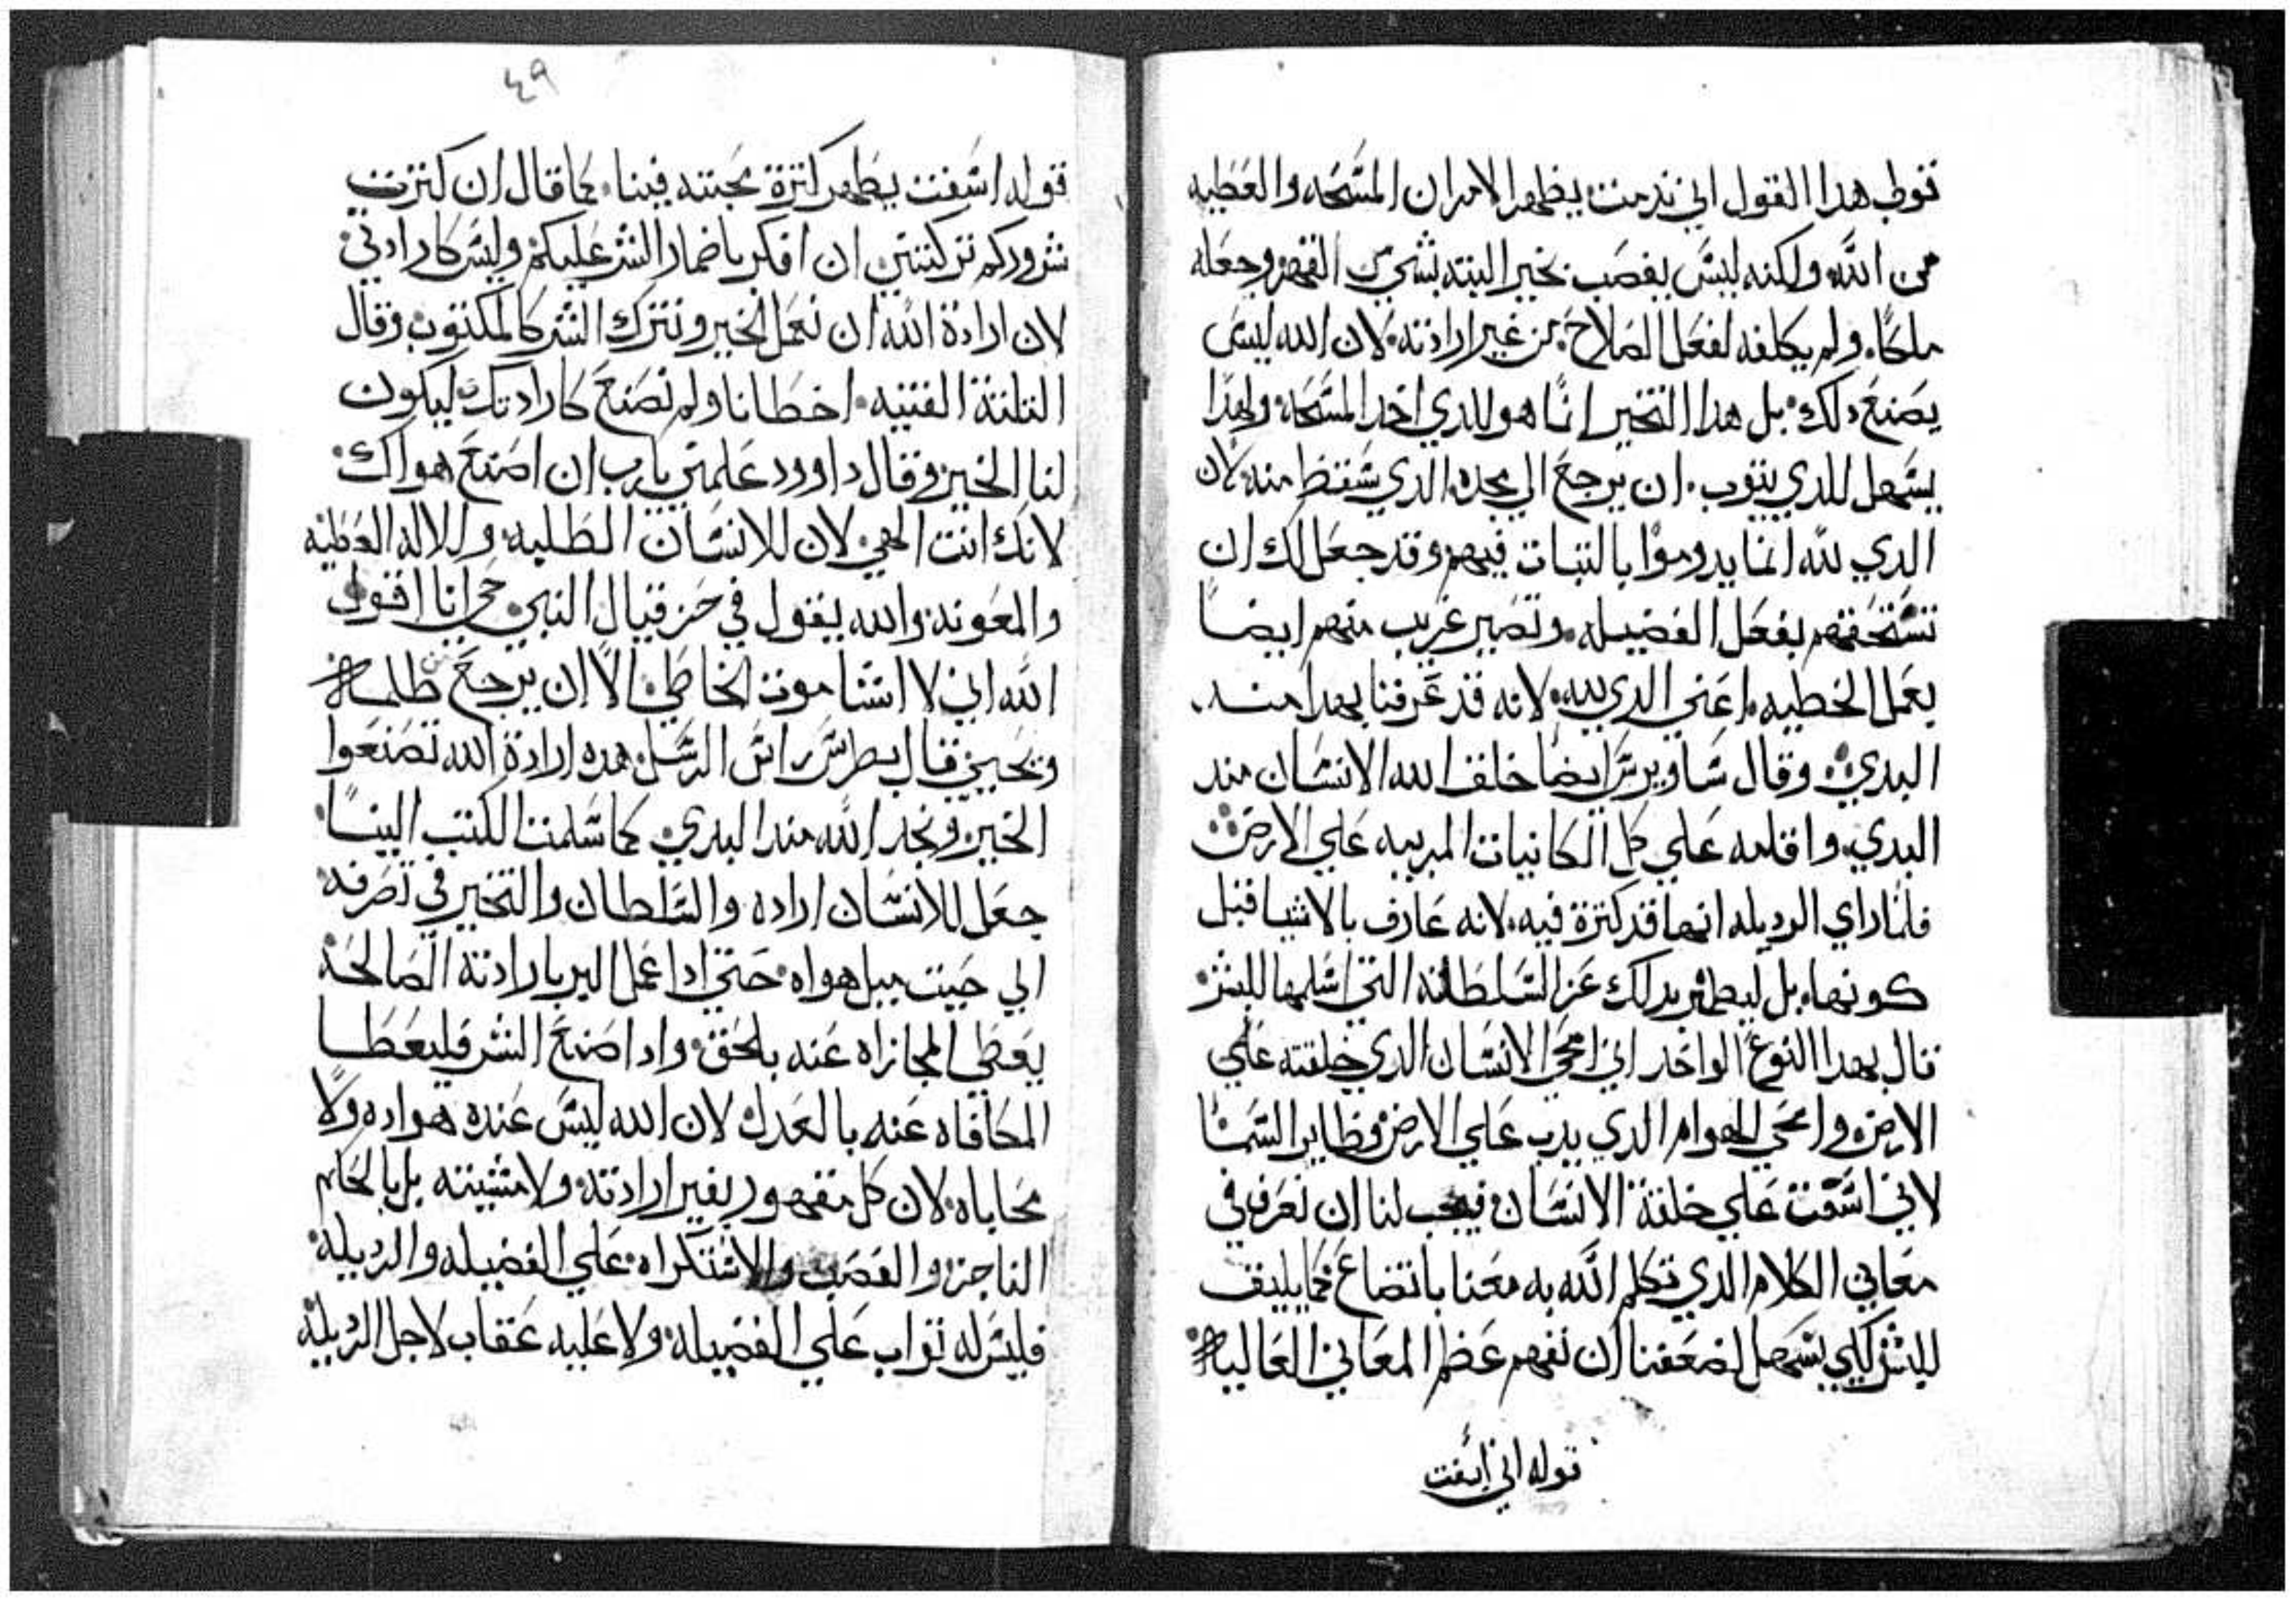 قوله هدا القول اني ندمت يظهر الامران المسحه والعطيه
من الله ولكنه ليس يغصب بخير البته بشي من القهر وجعله
ملكا. ولم يكلفه لفعل الصلاح من غير ارادته. لان الله ليس
يصنع دلك. بل هدا التخير انما هو للدي اخد المسحه ولهدا
يسهل للدي يتوب. ان يرجع الي مجده الدي سقط منه لان
الدي لله انما يدوموا بالتبات فيهم وقد جعل لك ان
تستحقهم بفعل الفضيله. وتصير غريب منهم ايضا
بعمل الخطيه. اعني الدي لله. لانه قد عرفنا بهدا مند.
البدي. وقال ساويرس ايضا خلق الله الانسان مند
البدي واقامه علي كل الكاينات المرييه علي الارض
فلما راي الرديله انها قد كترة فيه. لانه عارف بالاشيا قبل
كونها. بل ليظهر بدلك عز السلطانه التي اسلمها للبشر
قال بهدا النوع الواحد اني امحي الانسان الدي خلقته علي
الارض وامحي الهوام الدي يدب علي الارض وطاير السما
لاني اسفت علي خلقة الانسان فيجب لنا ان نعرف في
معاني الكلام الدي تكلم الله به معنا باتضاع كما يليق
للبشر لكي يسهل لضعفنا ان نفهم عظم المعاني العاليه
قوله اني اسفت
٤٩
قوله اسفت يظهر كترة محبته فينا. كما قال ان كترت
شروركم تركتني ان افكر باضمار الشر عليكم وليس كارادتي
لان ارادة الله ان نعمل الخير ونترك الشر كالمكتوب وقال
التلتة الفتيه. اخطانا ولم نصنع كارادتك ليكون
لنا الخير وقال داوود علمني يارب ان اصنع هواك
لانك انت الهي لان للانسان الطلبه. وللاله العطيه
والمعونه والله يقول في حزقيال النبي حي انا اقول
الله اني لا اشا موت الخاطي. الا ان يرجع من ظلمه
ويحيي قال بطرس راس الرسل هده ارادة الله تصنعوا
الخير ونجد الله مند البدي كما سلمت الكتب الينا
جعل للانسان اراده والسلطان والتخير في تصرفه
الي حيت ميل هواه حتي ادا عمل البر بارادته الصالحه
يعطي المجازاه عنه بالحق. وادا صنع الشر فليعطا
المكافاه عنه بالعدل لان الله ليس عنده هواده ولا
محاباه. لان كل مقهور بغير ارادته ولا مشيته بل بالحكم
الناجز والغصب والاستكراه علي الفضيله والرديله
فليس له تواب علي الفضيله ولا عليه عقاب لاجل الرديله